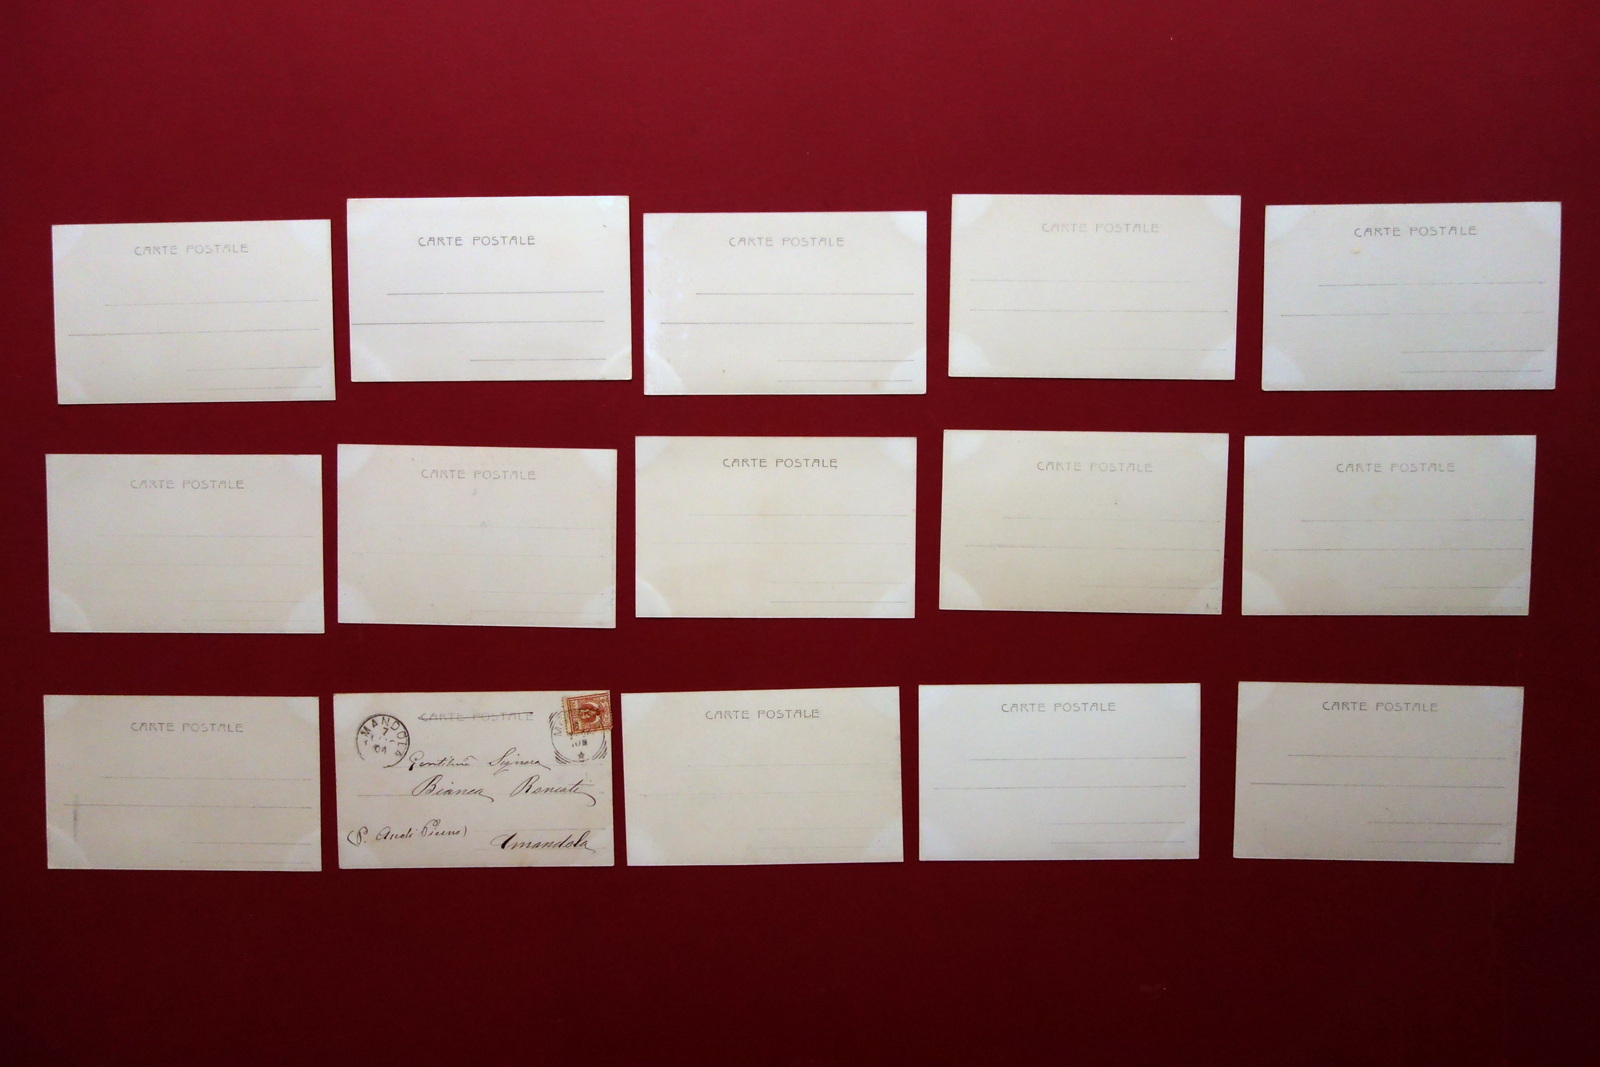 CARTE POSTALE
CARTE POSTALE
CARTE POSTALE
CARTE POSTALE
CARTE POSTALE
CARTE POSTALE
CARTE POSTALE
CARTE POSTALE
CARTE POSTALE
CARTE POSTALE
CARTE POSTALE
CARTE POSTALE
MANDOLA
7
04
Signora
Bianca Ronciti
(P. Ascoli Piceno)
Amandola
CARTE POSTALE
CARTE POSTALE
CARTE POSTALE